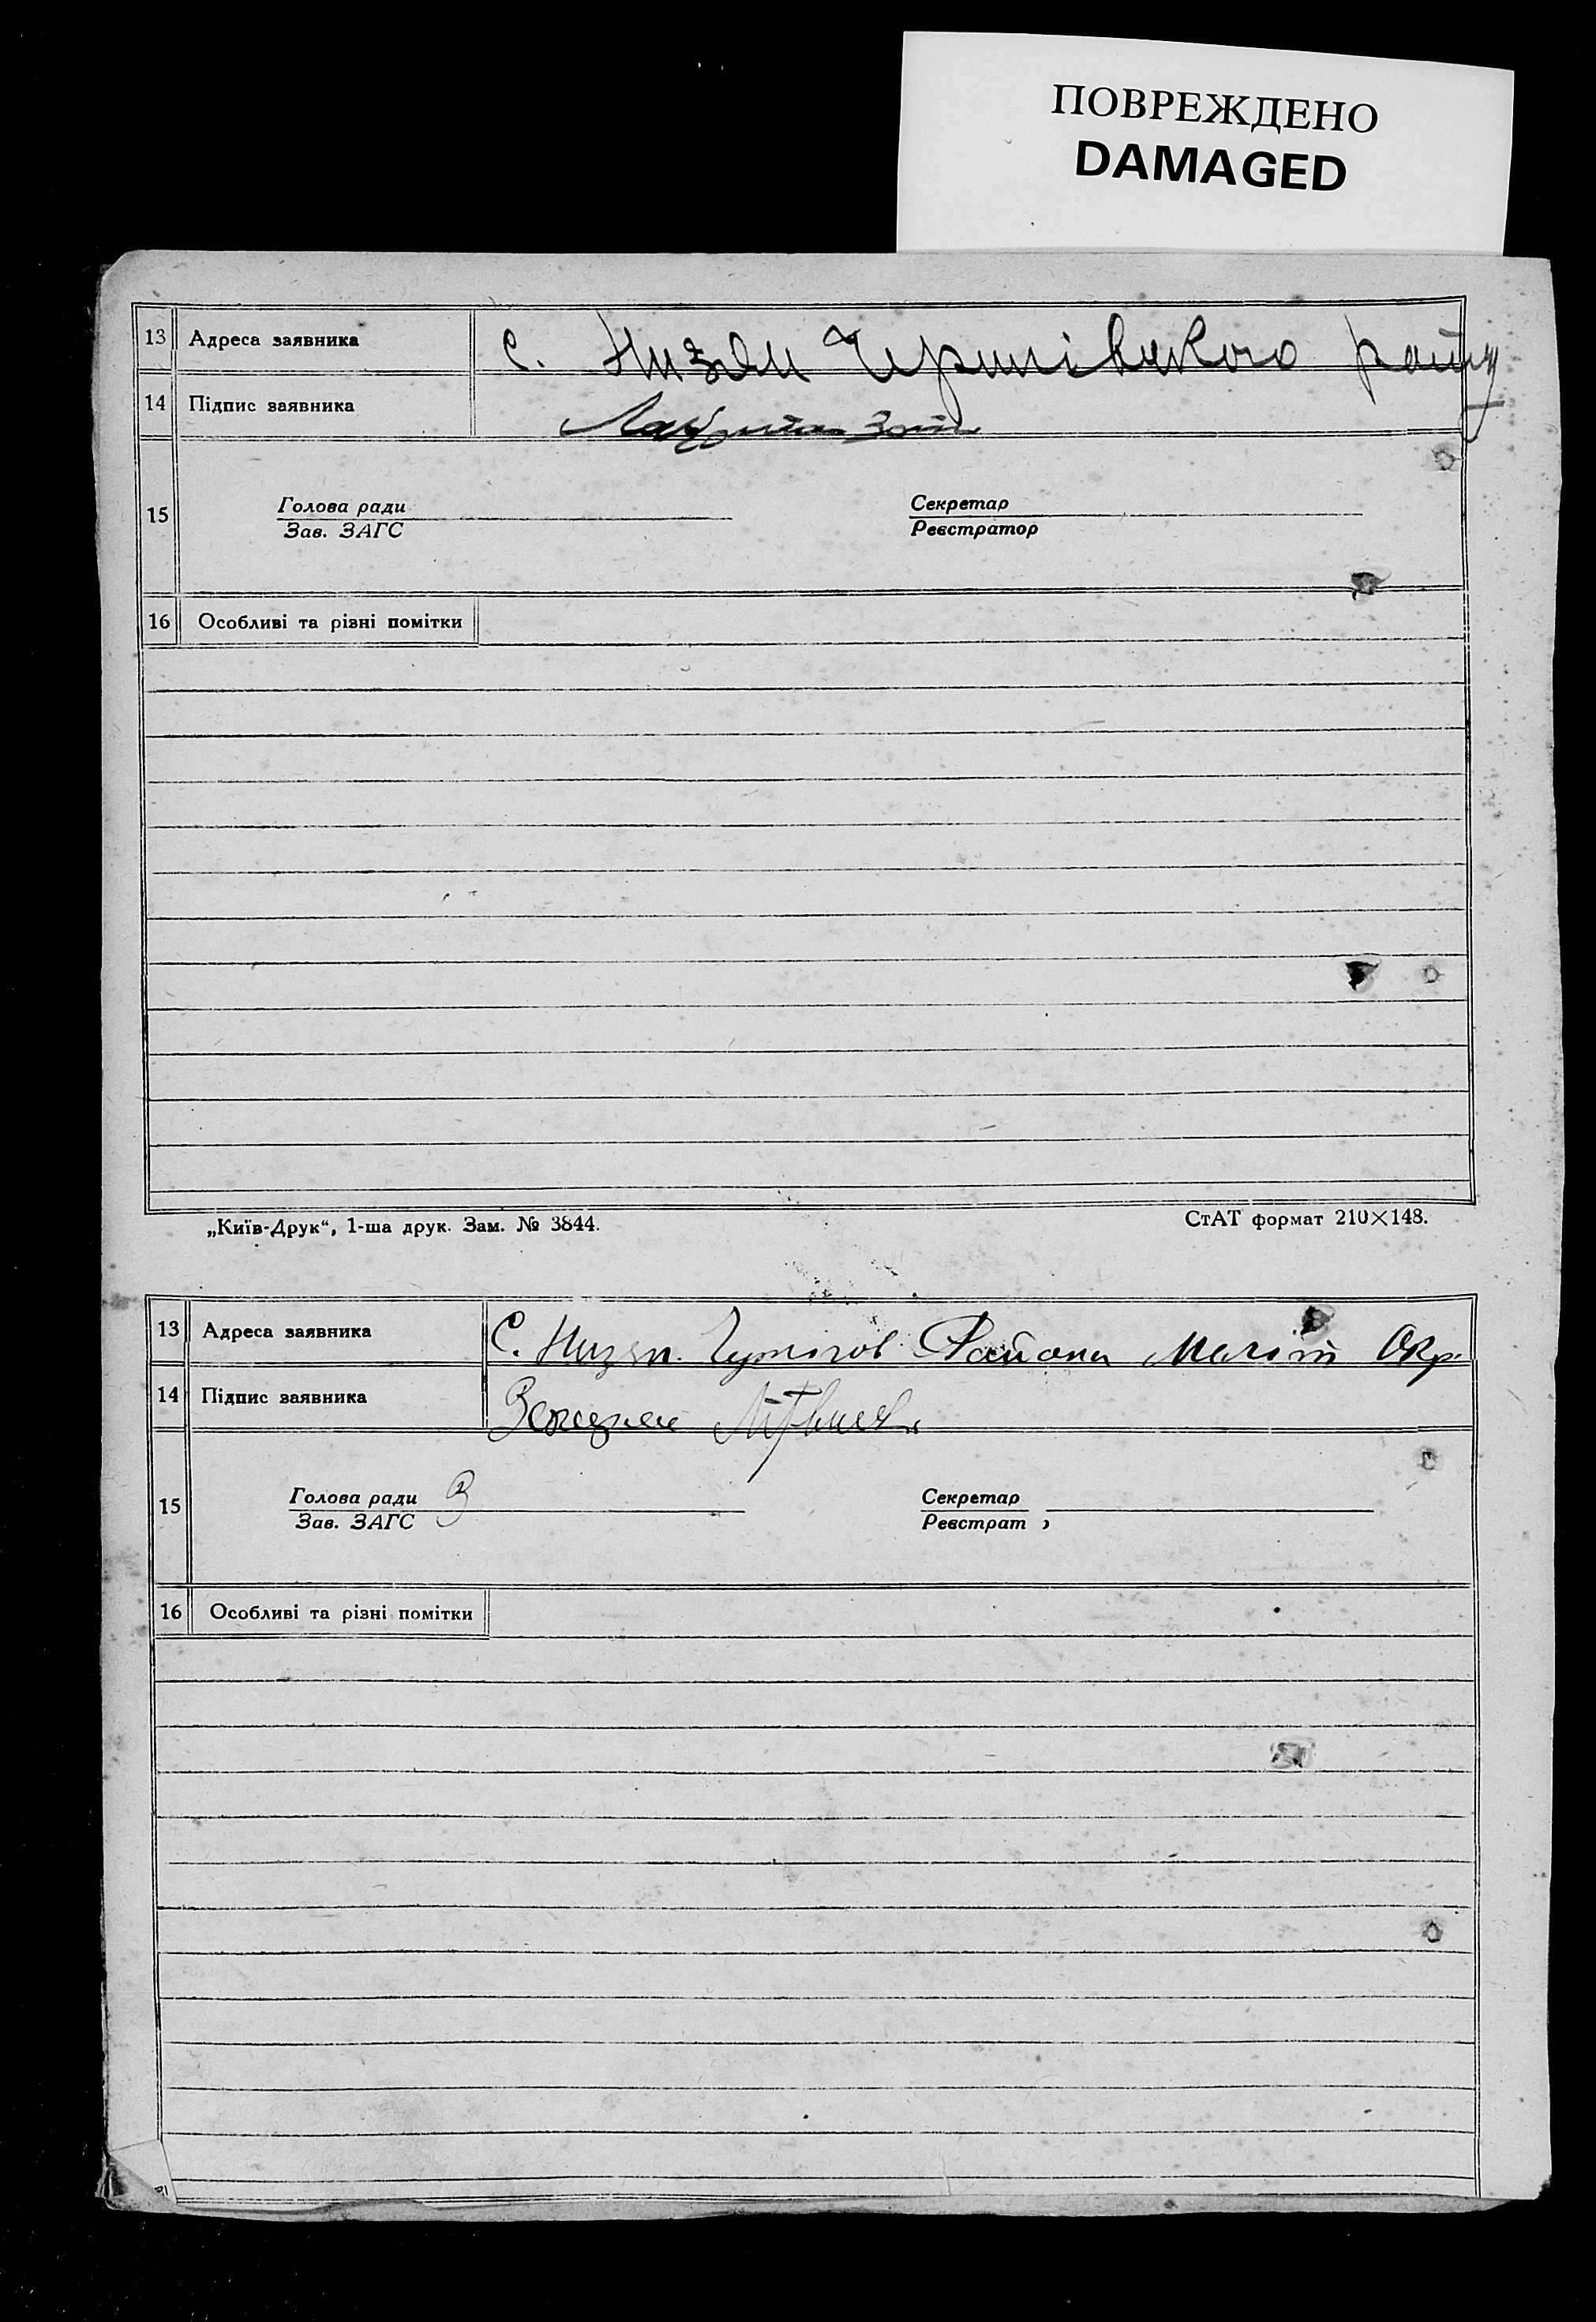 ПОВРЕЖДЕНО
DAMAGED
13 Адреса заявника с. Низяни Чернігівського району
14 Підпис заявника
15 Голова ради Секретар
Зав. ЗАГС Реєстратор
16 Особливі та різні помітки
„Київ-Друк“, 1-ша друк. Зам. № 3844. СтАТ формат 210×148.
13 Адреса заявника С. Района Окр.
14 Підпис заявника
15 Голова ради З Секретар
Зав. ЗАГС Реєстрат
16 Особливі та різні помітки